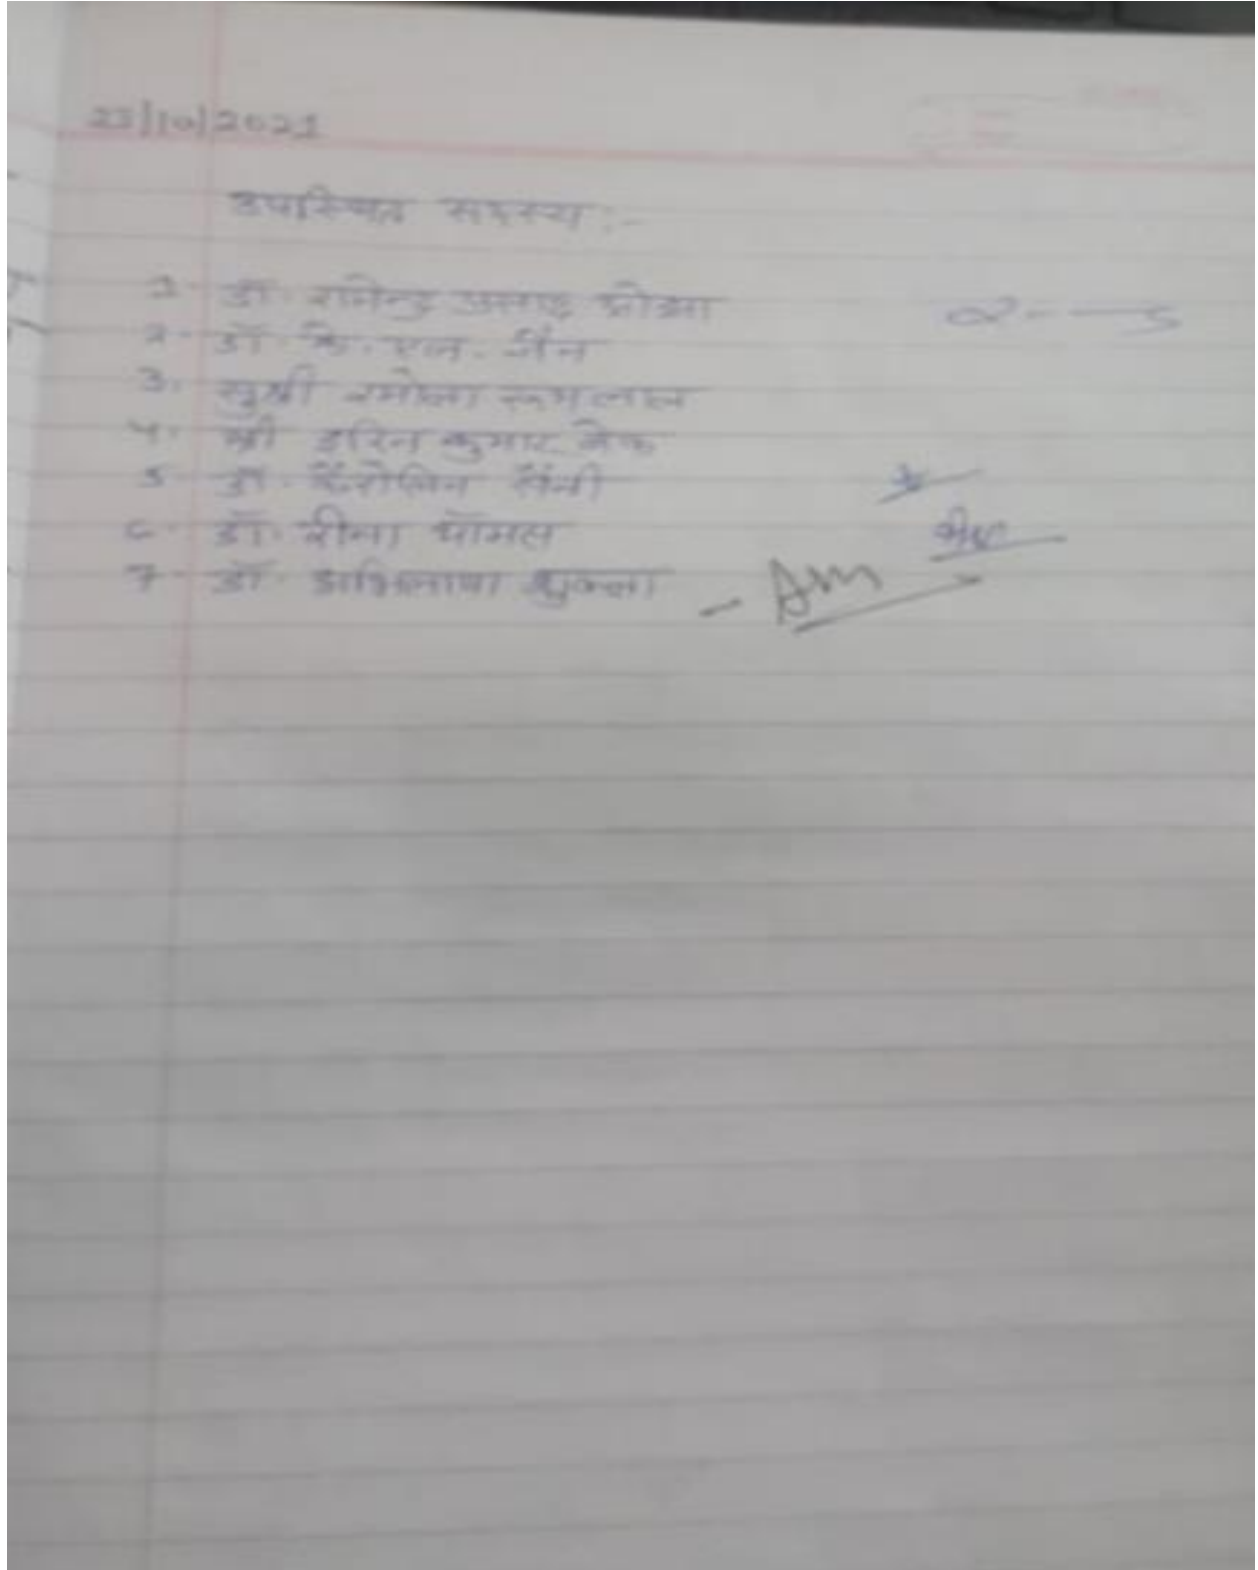 23/10/2021
उपस्थित सदस्य :-
1- डॉ. राजेन्द्र प्रसाद ओझा
2- डॉ. के. एल. जैन
3. सुश्री रमोला रूमलाल
4. श्री इरिन कुमार बेक
5- डॉ. कैरोलिन सैनी
6- डॉ. रीना थॉमस
7- डॉ. अभिलाषा शुक्ला -